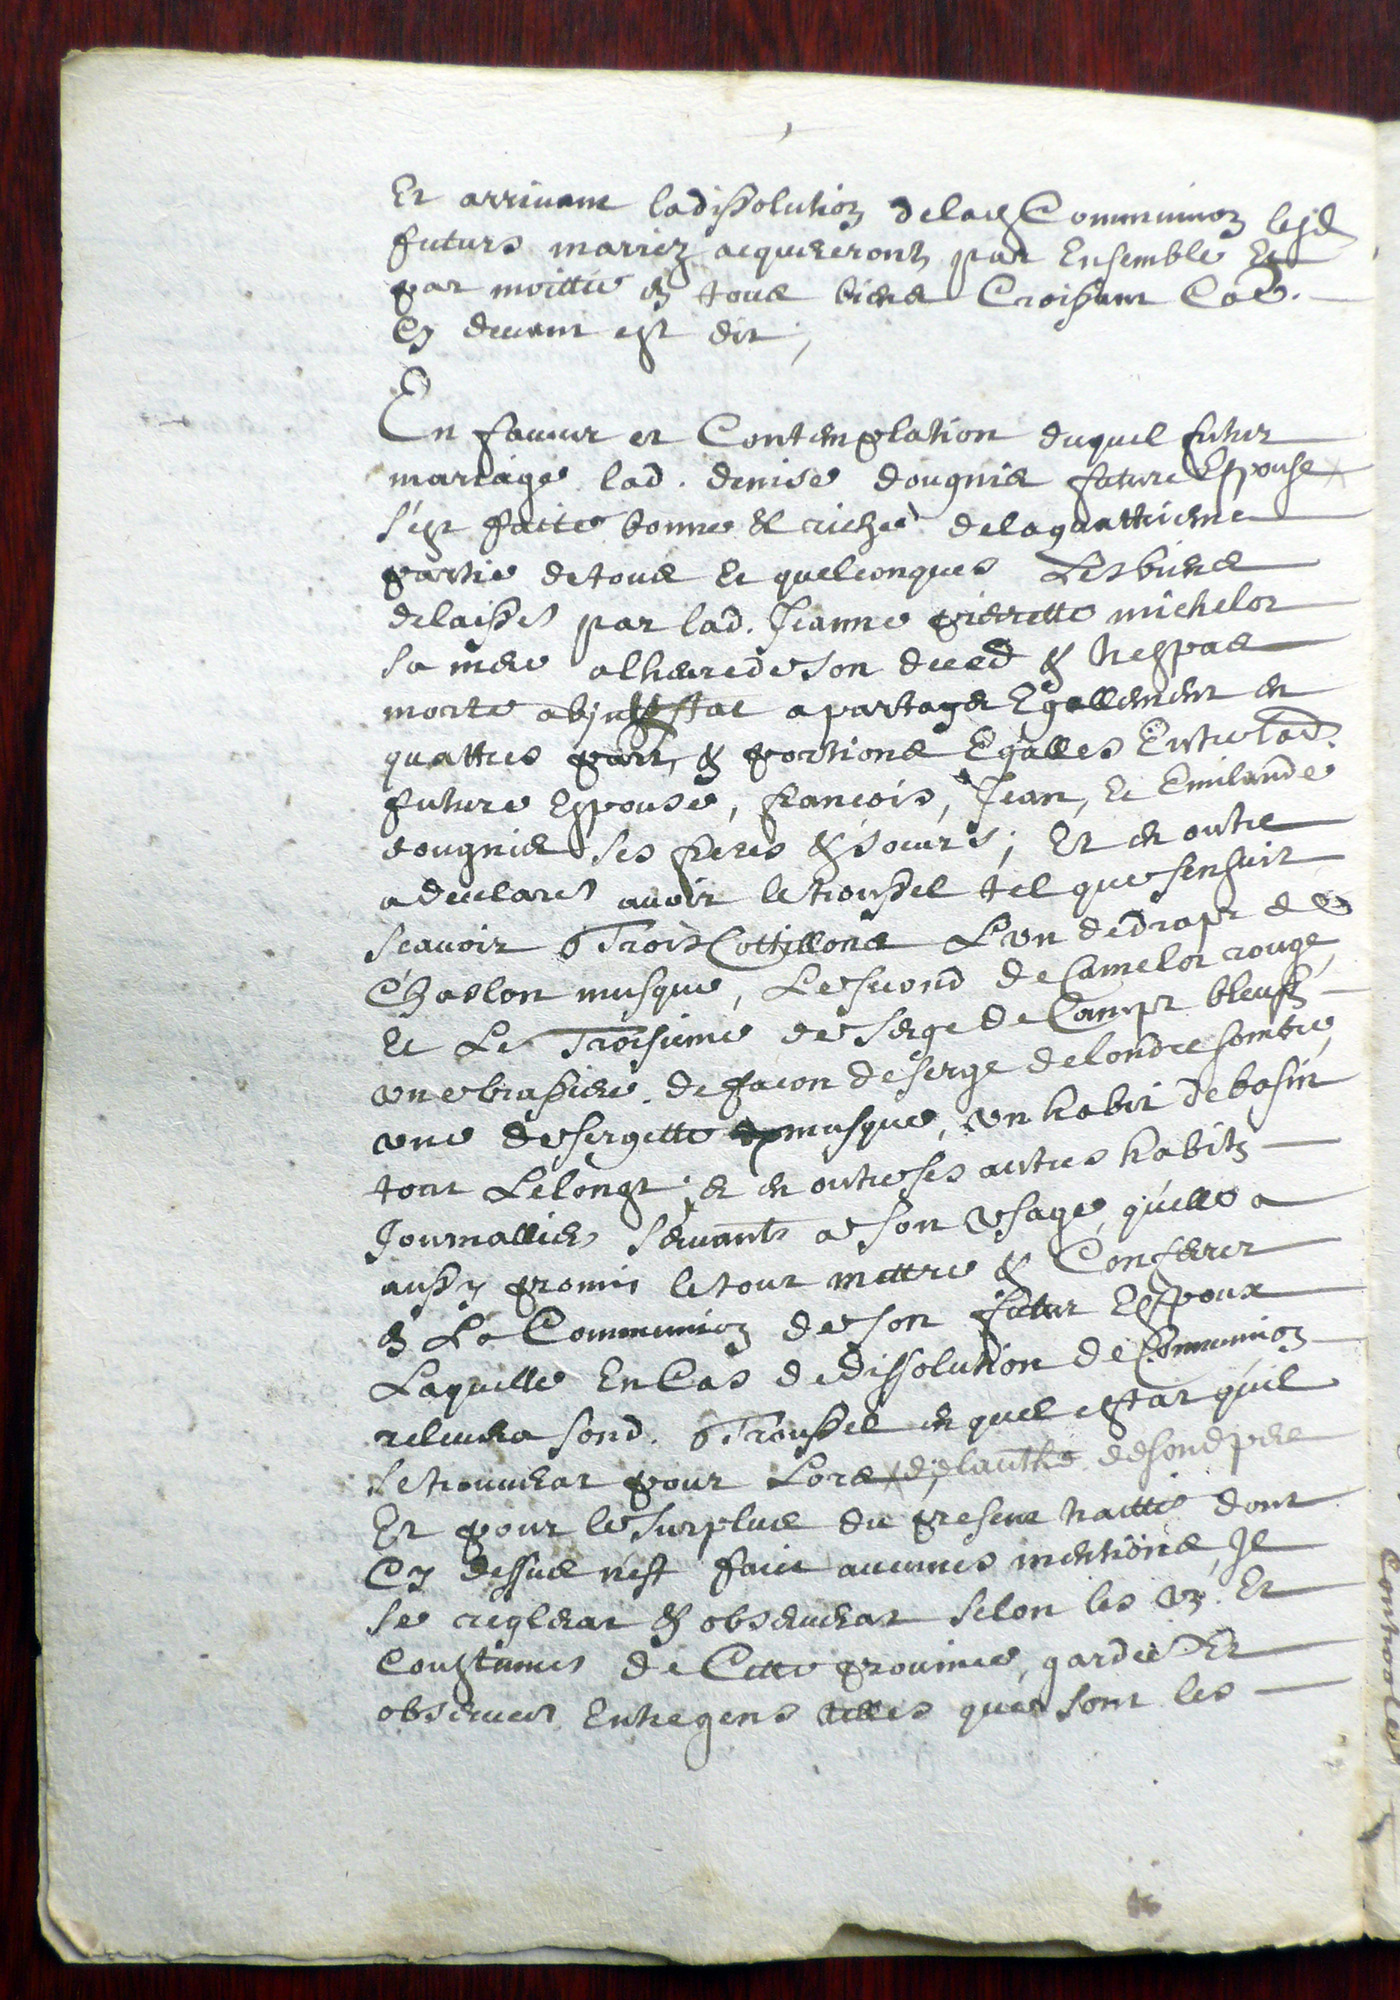 Et arrivant la dissolution de lad Communion lesd
futurs mariez acquereront par Ensemble Et
par moittié en tous biens Croissant Co͠e.
Cy devant est dit,
En faveur et Contemplation duquel futur
mariage lad. denise dougnier future Espouse
s'est faite bonne et riche de la quattrieme
partie de tous et quelconques Les biens
delaissés par lad. Jeanne pierrette michelot
sa mere a lheure de son deced & trespas
morte abjntestat a partager Egallement en
quattres part, & portions Egalles Entre lad.
future Espouse, françois, Jean, Et Emilande
dougnier ses freres & soeurs; Et en outre
a declarés avoir le troussel tel que senssuit
scavoir Trois Cottillons L'un de drapt de
Chaslon musque, Le second de Camelot rouge,
Et Le Troisieme de serge de Campt bleufz
une brassiere de façon de serge de londre sombre,
une de sergette musque, un habit de basin
tout Le longt; & en outre ses autres habitz
Journalliers servants a son usage, quelle a
aussy promis le tout mettre & Conferer
en La Communion de son futur Espoux
Laquelle En Cas de dissolution de Communion
relevera sond. Troussel en quel estat quil
se trouverat pour Lors, de lauthe de sond pere
Et pour le surplus du present traitté dont
Cy dessus n'est faict aucunes mentions, Il
se reglerat & observerat selon les us Et
Coustumes de Cette province, gardée Et
observees Entre gens telles que sont les